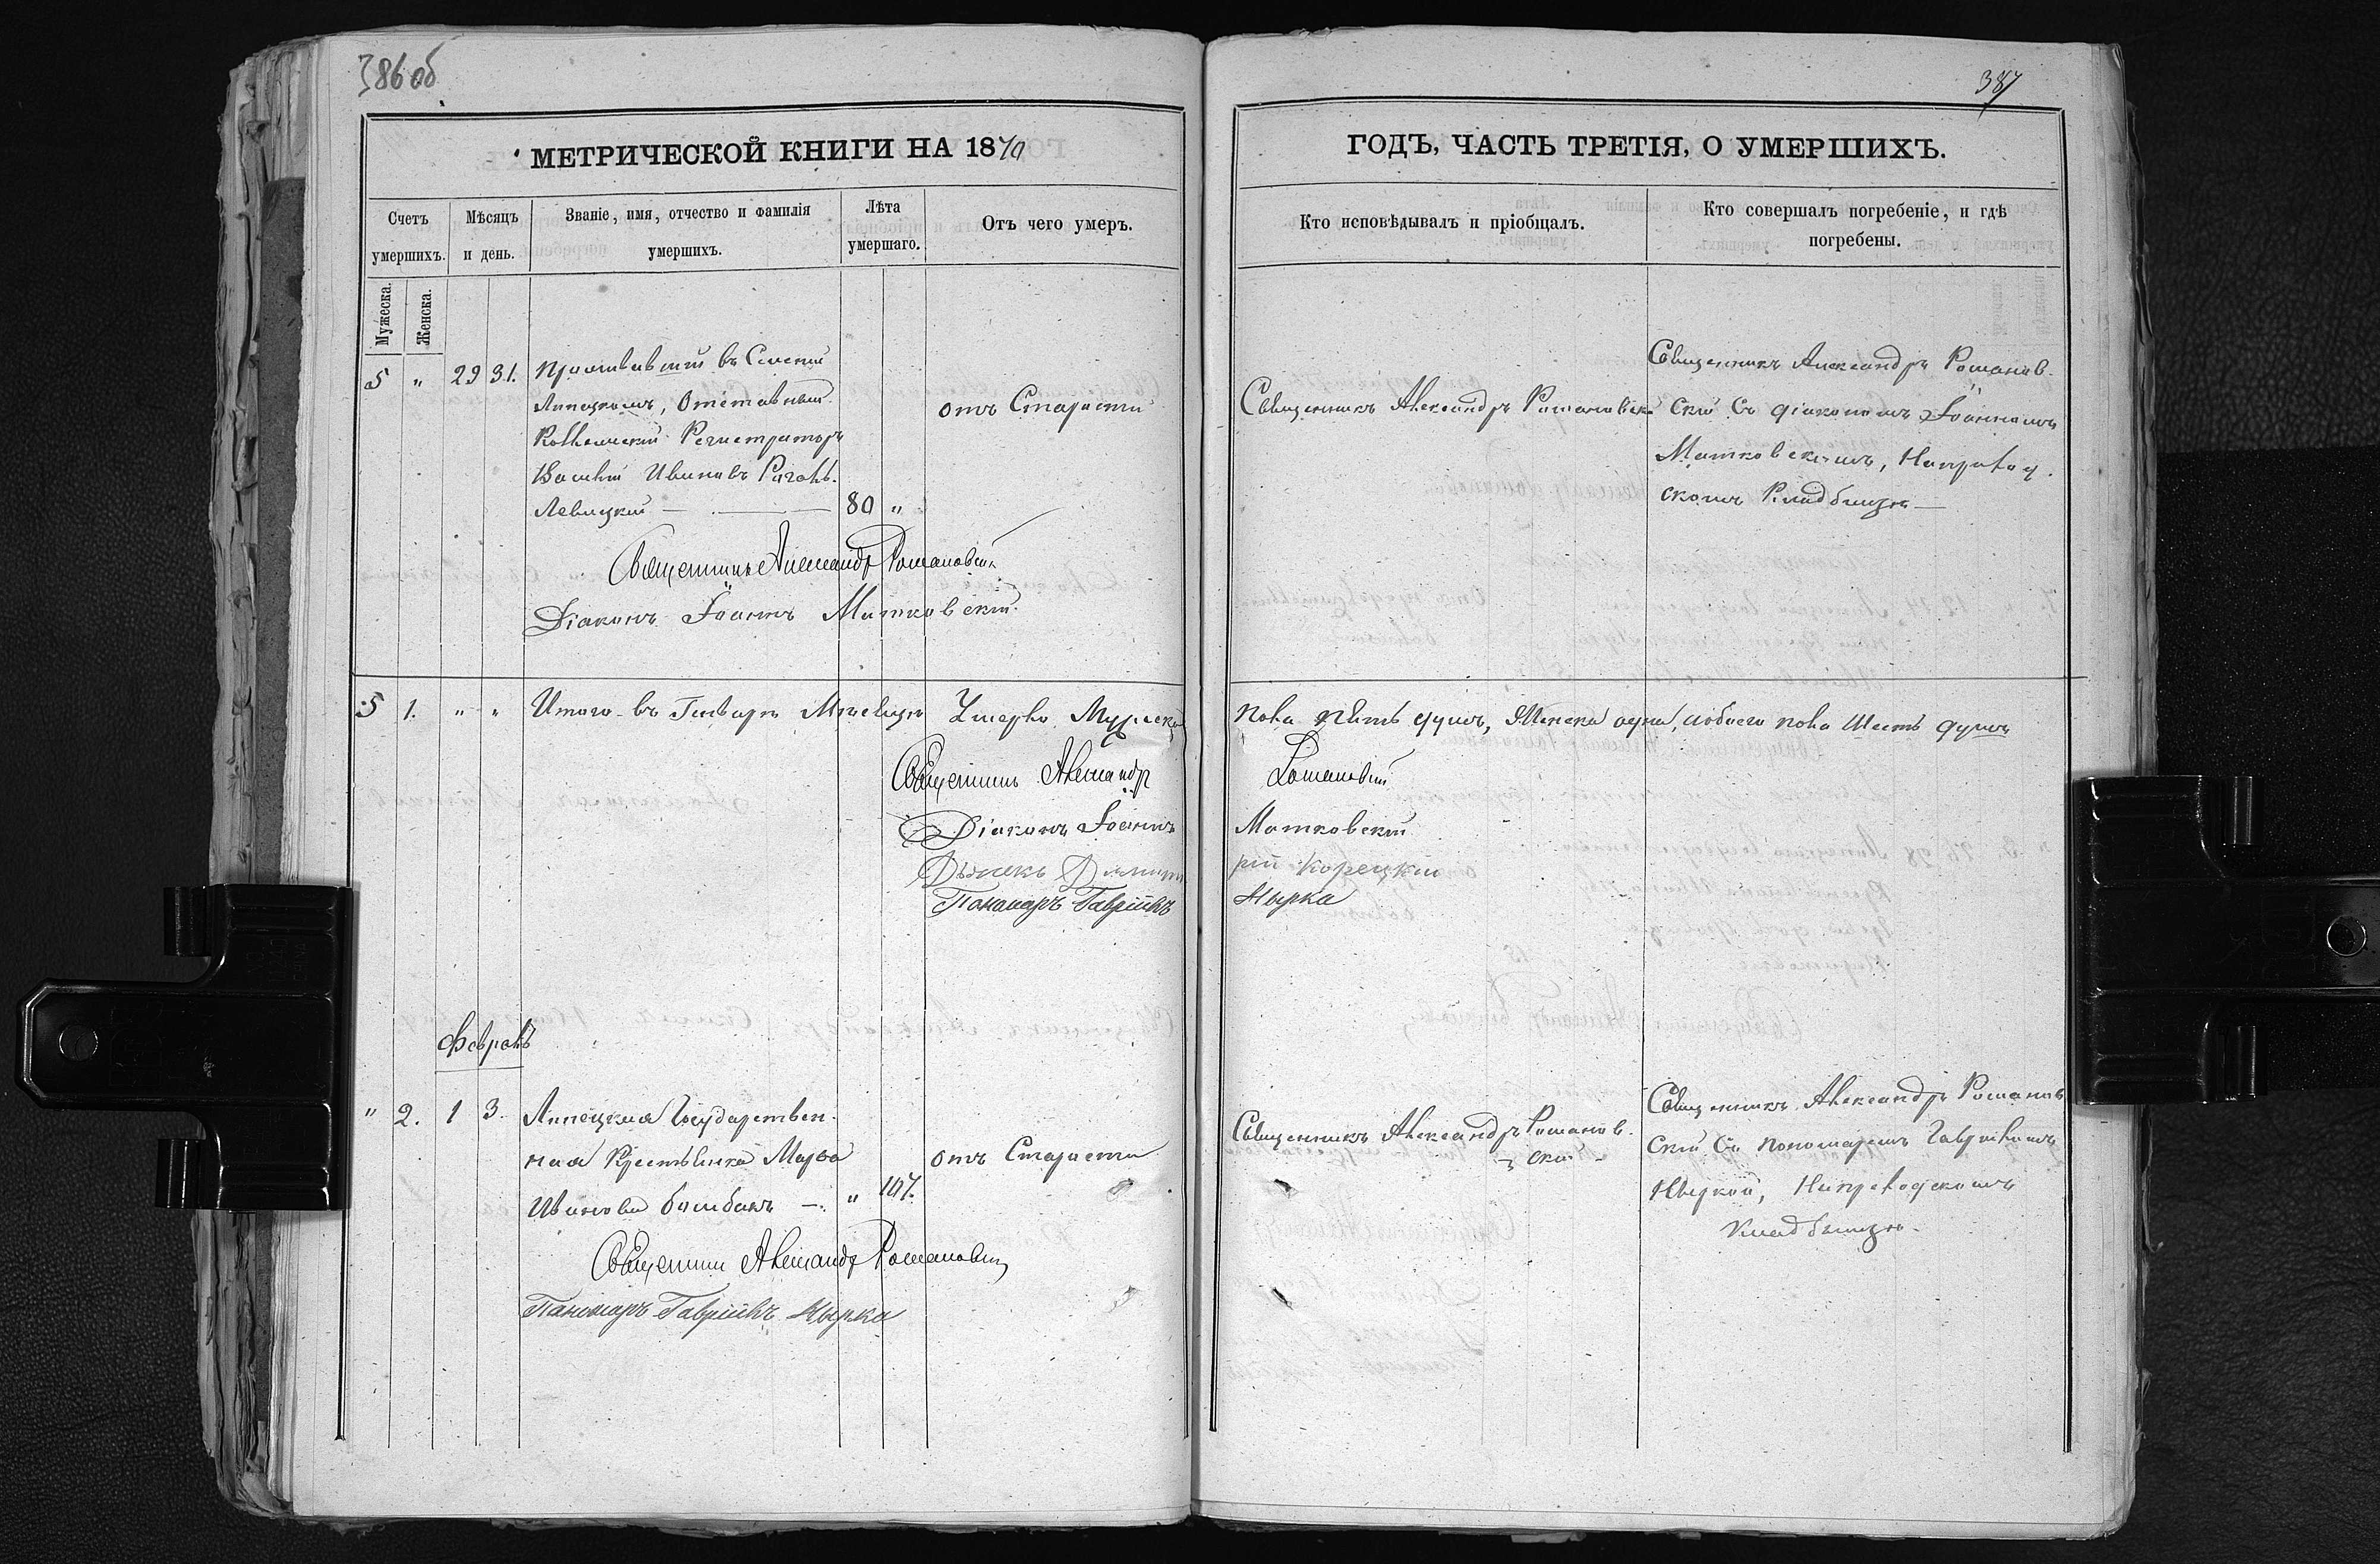 386 об
МЕТРИЧЕСКОЙ КНИГИ НА 1870
Счетъ умершихъ.
Мѣсяцъ и день.
Званіе, имя, отчество и фамилія умершихъ.
Лѣта умершаго.
Отъ чего умеръ.
Мужеска.
Женска.
5 " 29 31. Проживавшій въ Селеніи
Липецкомъ, Отставный
Коллежскій Регистраторъ
Василій Ивановъ
Левицкій — 80 "
отъ Старости
Священникъ Александръ Романовскій
Діаконъ Іоаннъ Матковскій
5 1. " " Итого въ Генварѣ Мѣсяцѣ Умерло Мужеска
Священникъ Александръ
Діаконъ Іоаннъ
Дьячекъ Димит
Пономарь Гавріилъ
Февраль
" 2. 1 3. Липецкая Государствен-
ная Крестьянка Марѳа
Иванова — " 107.
отъ Старости
Священникъ Александръ Романовскій
Пономарь Гавріилъ Нырка
387
ГОДЪ, ЧАСТЬ ТРЕТІЯ, О УМЕРШИХЪ.
Кто исповѣдывалъ и пріобщалъ.
Кто совершалъ погребеніе, и гдѣ погребены.
Священникъ Александръ Романовскій
Священникъ Александръ Романов-
скій Съ діакономъ Іоанномъ
Матковскимъ, На приход-
скомъ Кладбищѣ —
пола пять душъ, Женска одна, обоего пола Шесть душъ
Романовскій
Матковскій
рій Корецкій
Нырка
Священникъ Александръ Романов-
скій
Священникъ Александръ Романов
скій Съ пономаремъ Гавріиломъ
Ныркой, На приходскомъ
кладбищѣ.